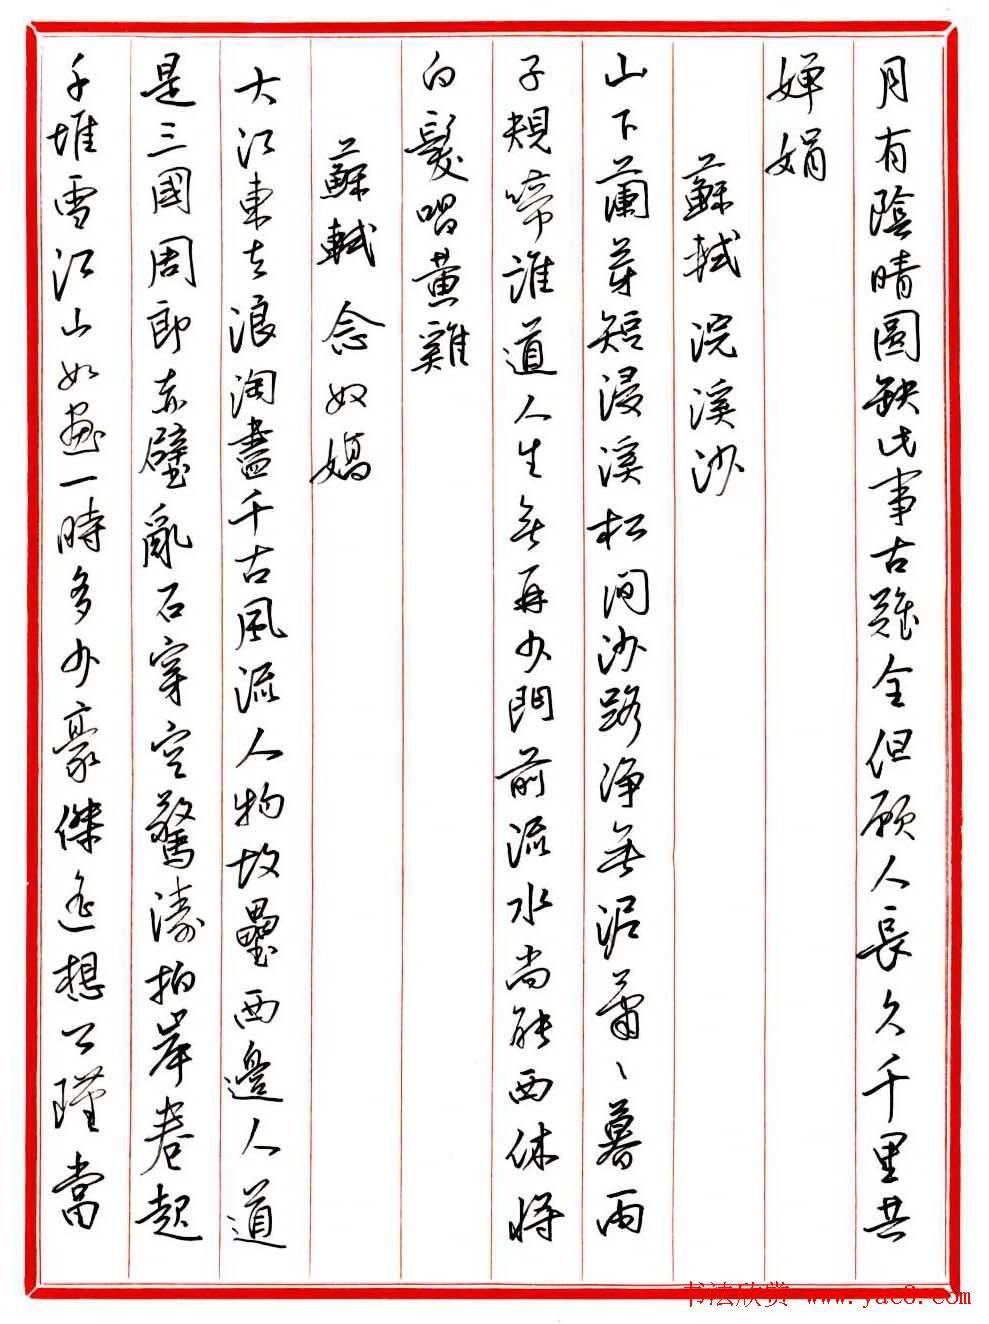 月有陰晴圓缺此事古難全但願人長久千里共
嬋娟
蘇軾 浣溪沙
山下蘭芽短浸溪松間沙路淨無泥蕭、暮雨
子規啼誰道人生無再少門前流水尚能西休將
白髮唱黃雞
蘇軾 念奴嬌
大江東去浪淘盡千古風流人物故壘西邊人道
是三國周郎赤壁亂石穿空驚濤拍岸卷起
千堆雪江山如畫一時多少豪傑遙想公瑾當
书法欣赏 www.yac8.com